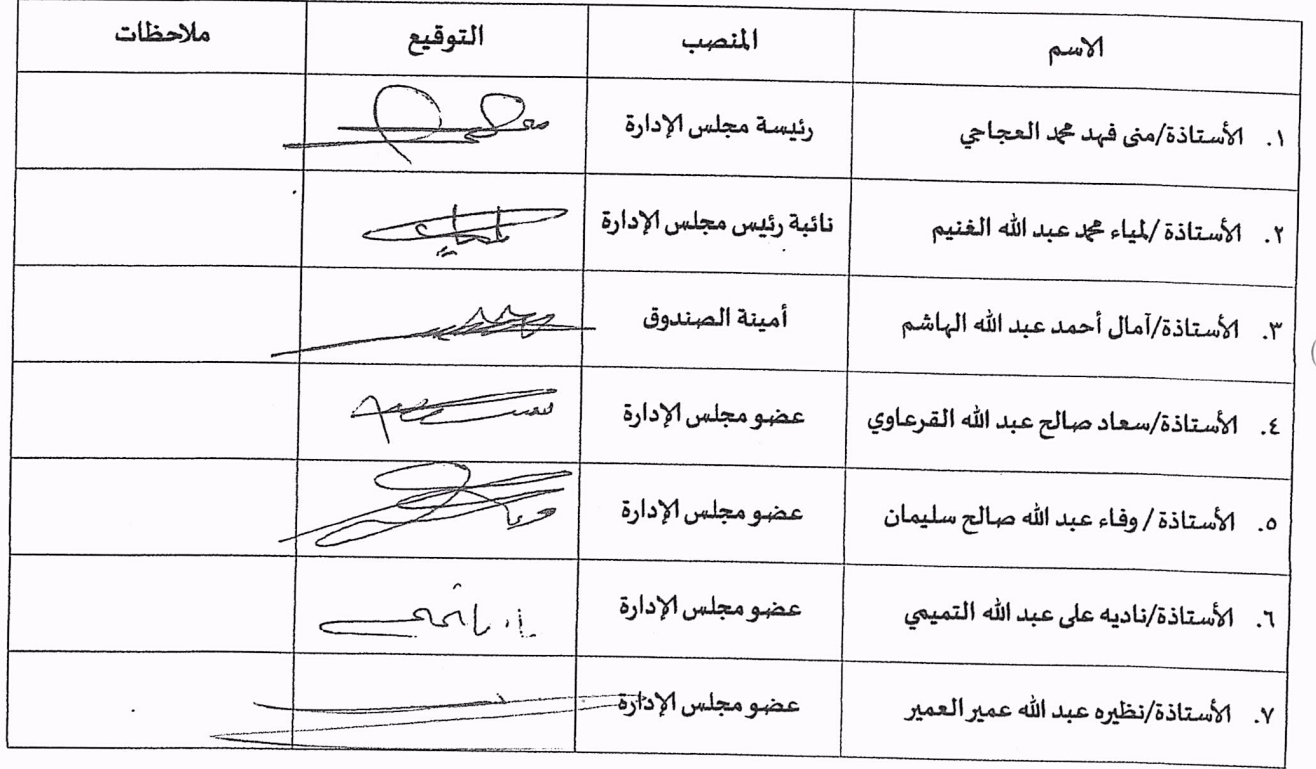 الاسم المنصب التوقيع ملاحظات
١. الأستاذة/منى فهد محمد العجاجي رئيسة مجلس الإدارة
٢. الأستاذة /لمياء محمد عبد الله الغنيم نائبة رئيس مجلس الإدارة
٣. الأستاذة/آمال أحمد عبد الله الهاشم أمينة الصندوق
٤. الأستاذة/سعاد صالح عبد الله القرعاوي عضو مجلس الإدارة
٥. الأستاذة / وفاء عبد الله صالح سليمان عضو مجلس الإدارة
٦. الأستاذة/ناديه على عبد الله التميمي عضو مجلس الإدارة
٧. الأستاذة/نظيره عبد الله عمير العمير عضو مجلس الإدارة